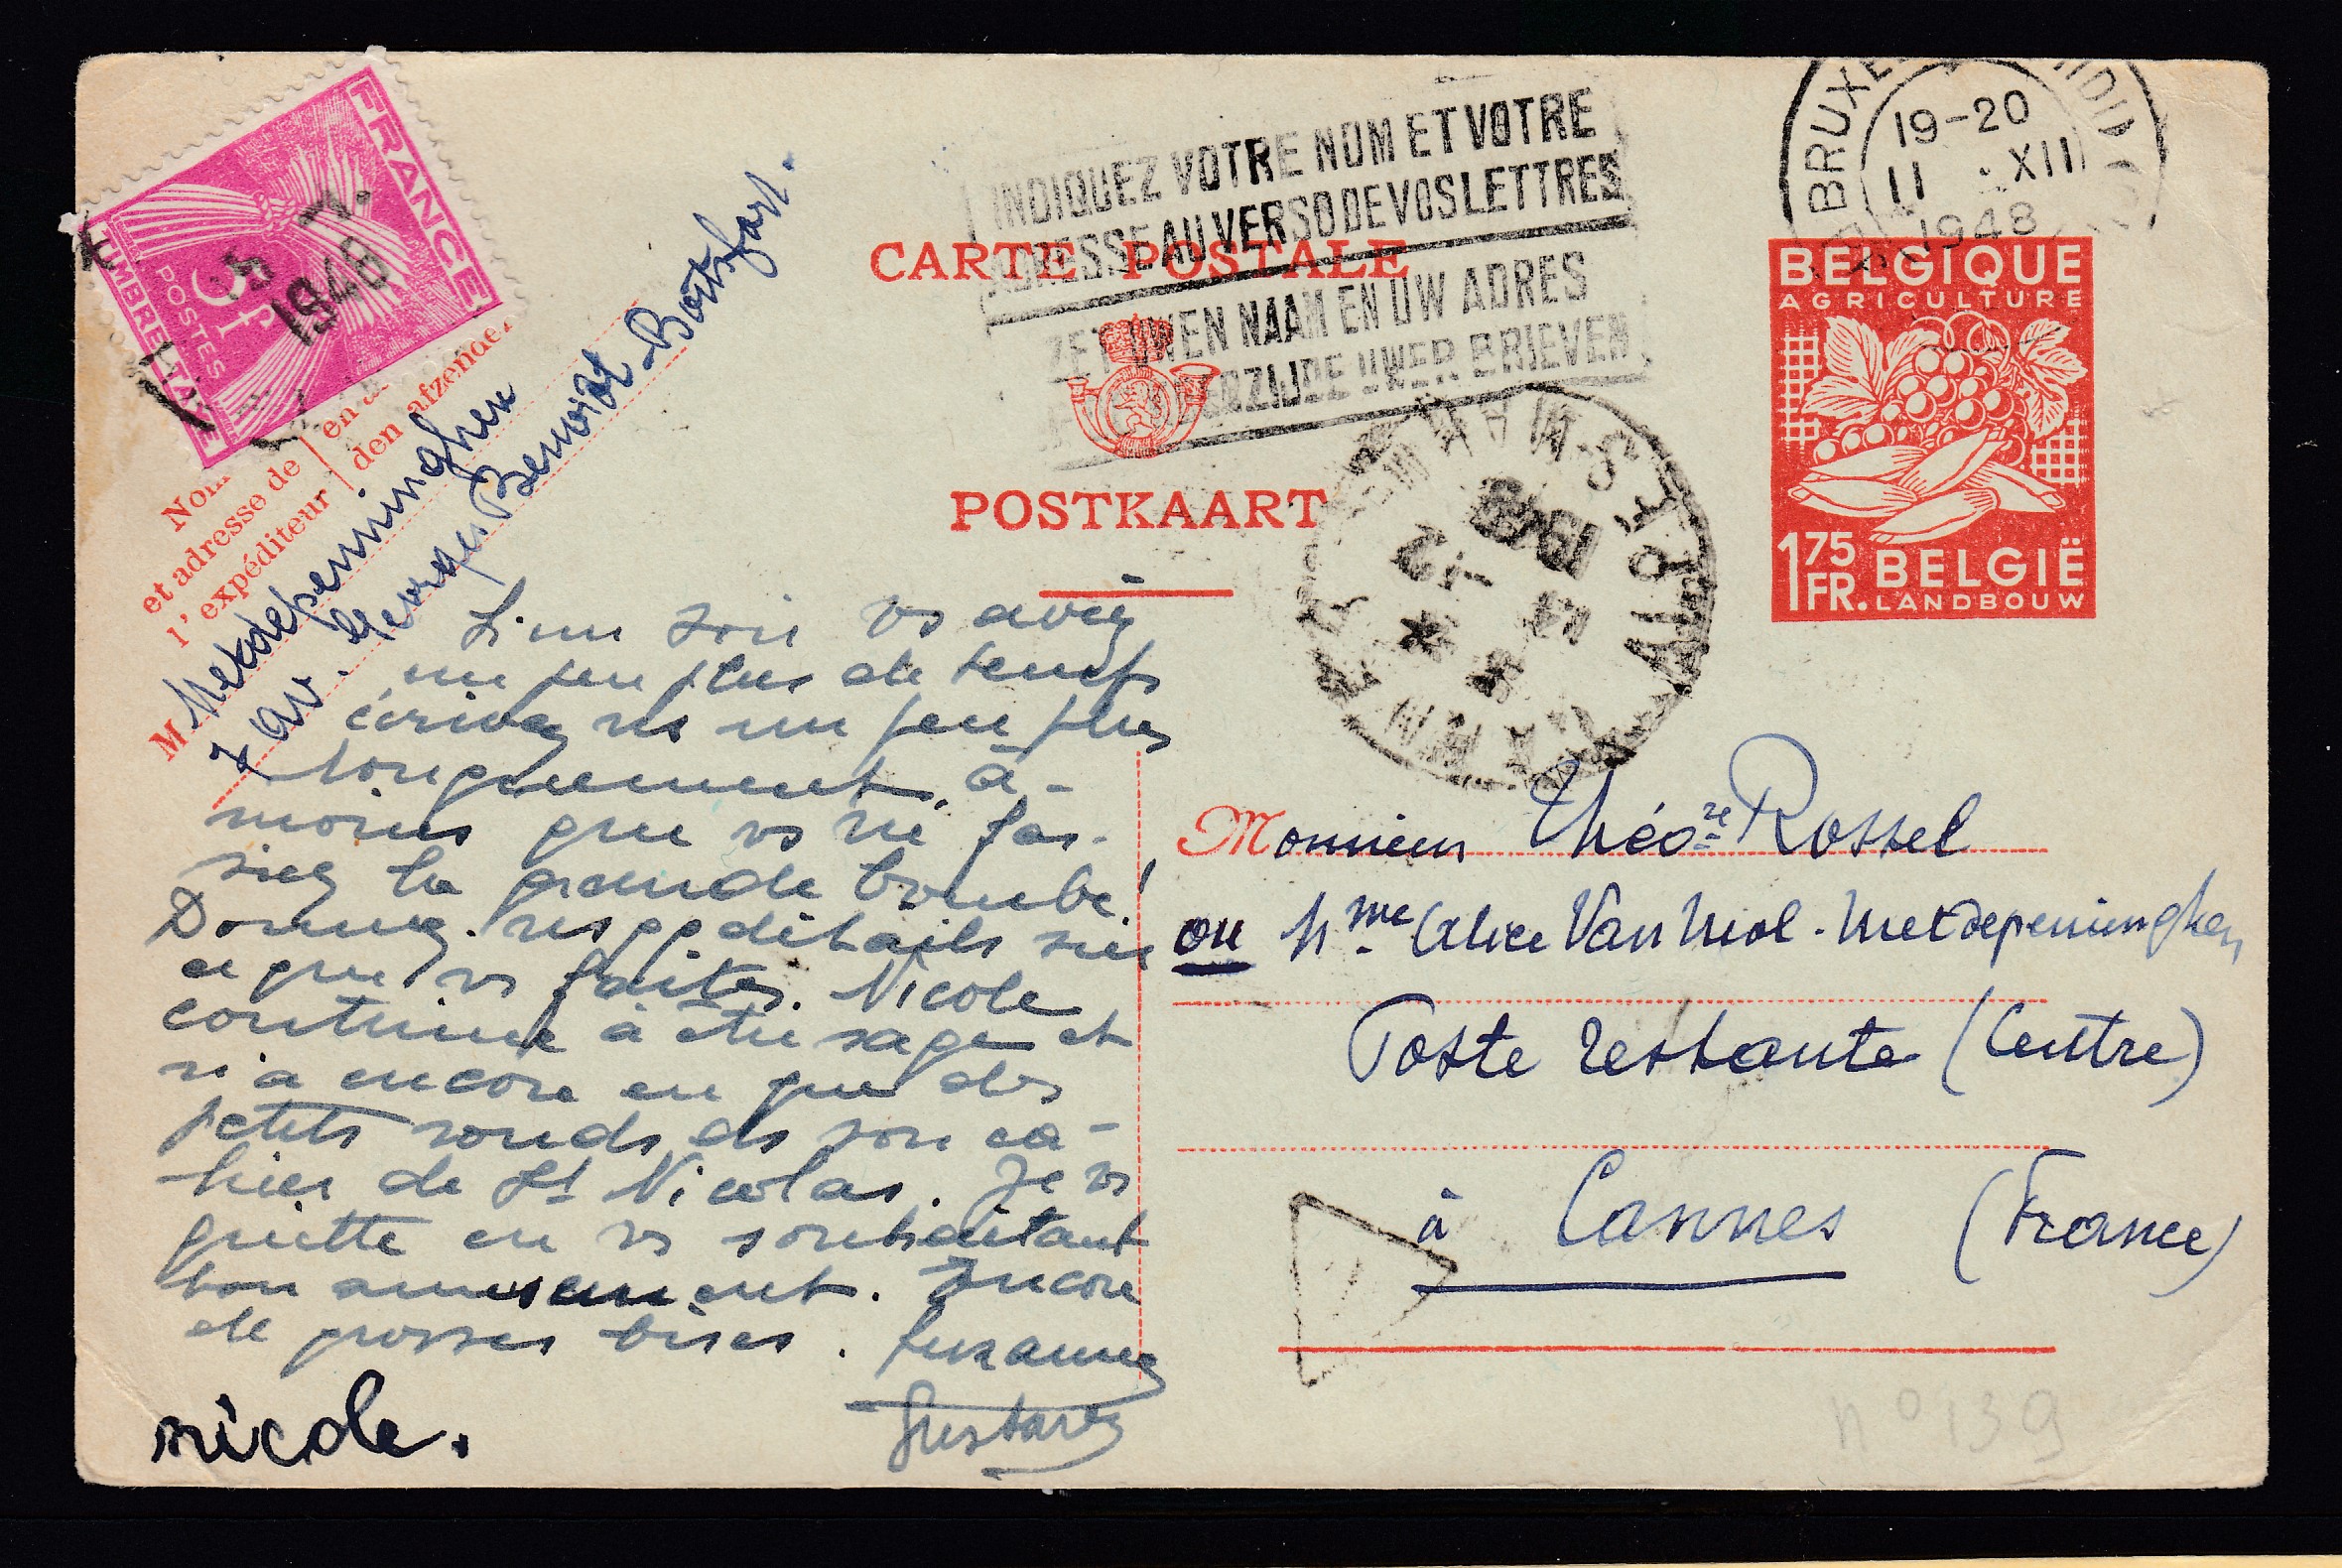 FRANCE
5F
POSTES
TIMBRE TAXE
1948
Nom
et adresse de
l'expéditeur
en a
den afzende
M Metdepenninghen
7 av. Georges Benoidt-Boitsfort.
INDIQUEZ VOTRE NOM ET VOTRE
ADRESSE AU VERSO DE VOS LETTRES
ZET UWEN NAAM EN UW ADRES
ZIJDE UWER BRIEVEN
CARTE POSTALE
POSTKAART
BRUX
19-20
11 · XII
1948
BELGIQUE
AGRICULTURE
1 75
FR.
BELGIË
LANDBOUW
ALPES MAR
Si un soir vs avez
un peu plus de temps
écrivez ns un peu plus
longuement, à-
moins que vs ne fas-
siez la grande bombe!
Donnez ns qq détails sur
ce que vs faites. Nicole
continue à être sage et
n'a encore eu que des
petits ronds ds son ca-
hier de St Nicolas. Je vs
quitte en vs souhaitant
bon amusement. Encore
de grosses bises. Suzanne
Gustave
nicole.
Monsieur Théo Rossel
ou Mme Alice Van Mol-Metdepenninghen
Poste restante (Centre)
à Cannes (France)
T
n° 139